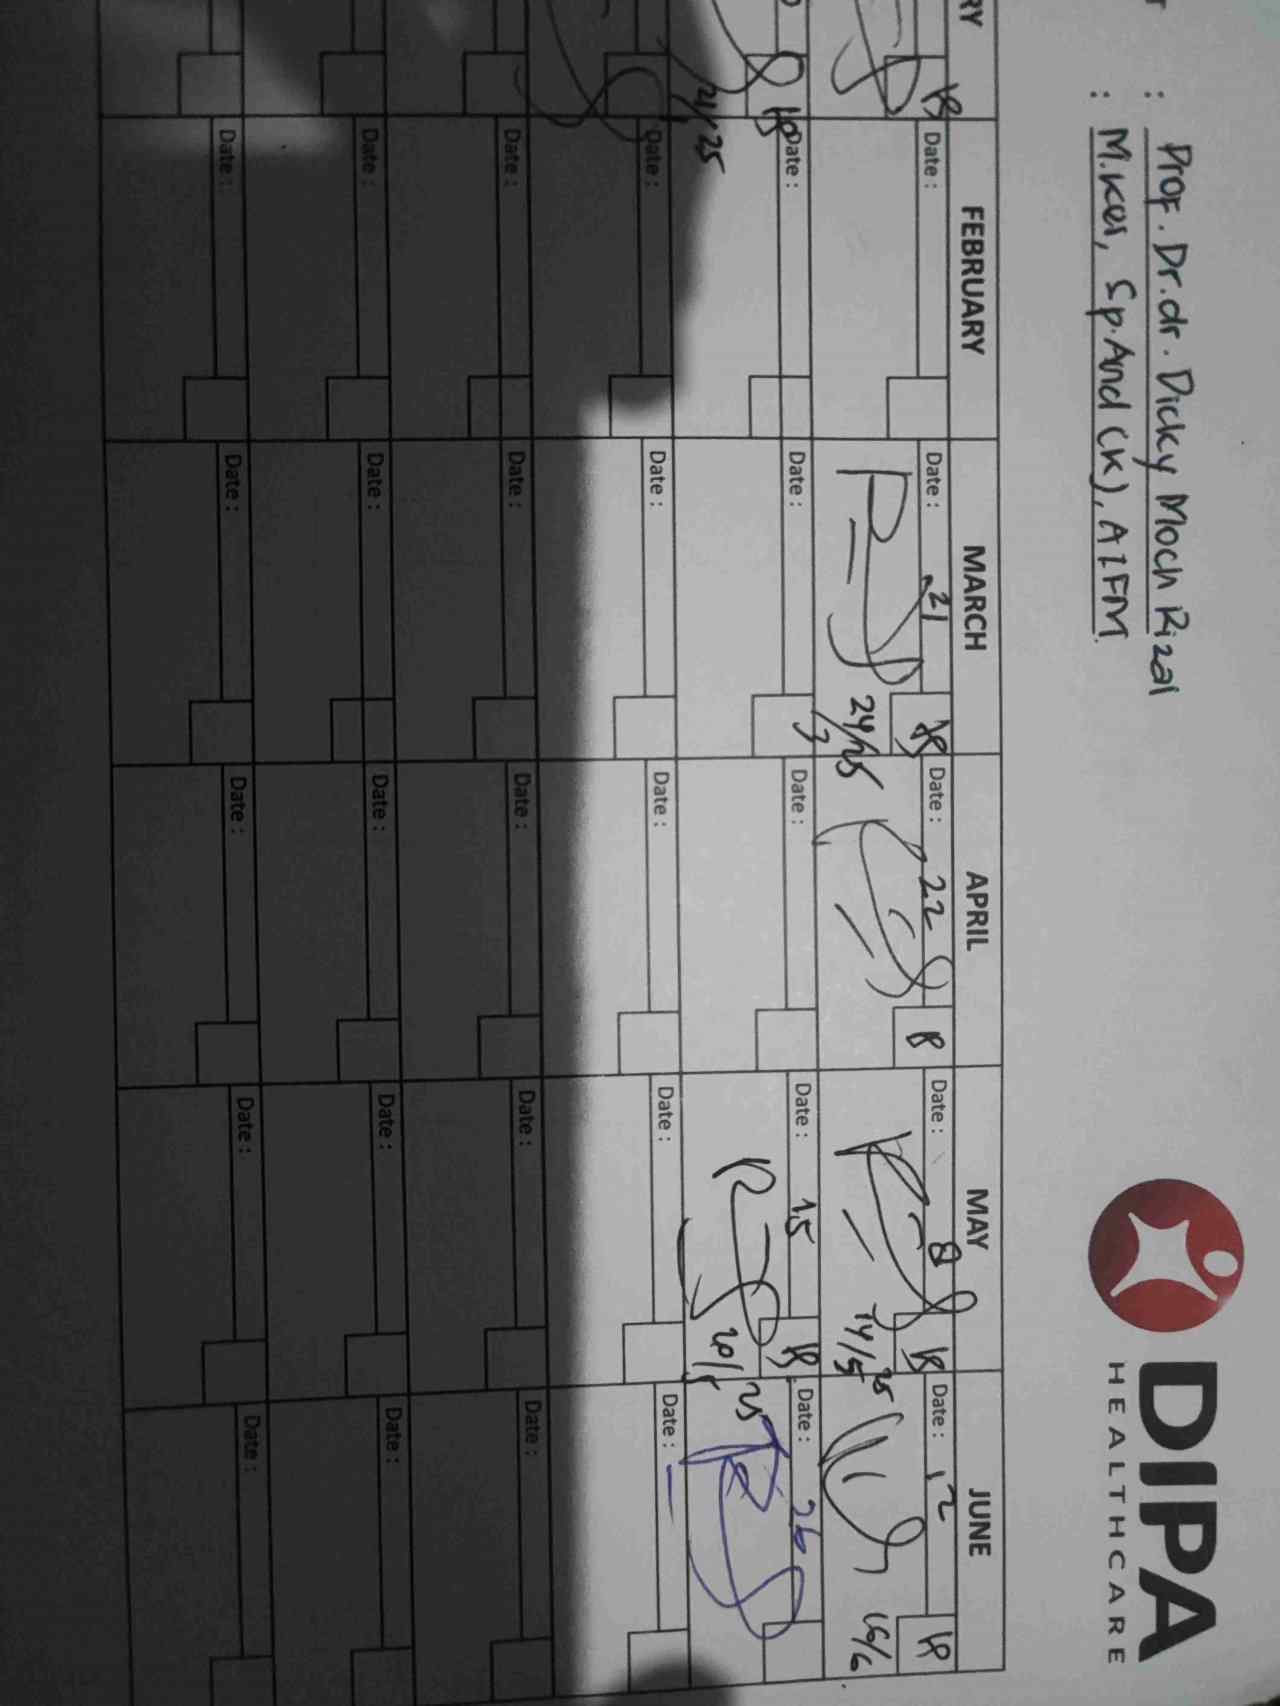 : Prof. Dr. dr. Dicky Moch Rizal
: M.Kes, Sp.And (K), AIFM.
DIPA
HEALTHCARE
RY FEBRUARY MARCH APRIL MAY JUNE
Date : Date : 21 Date : 22 Date : 8 Date : 12
24/25 14/5 25 16/6
3
Date : Date : Date : Date : 15 Date : 26
25
Date : Date : Date : Date : Date :
Date : Date : Date : Date : Date :
Date : Date : Date : Date : Date :
Date : Date : Date : Date : Date :